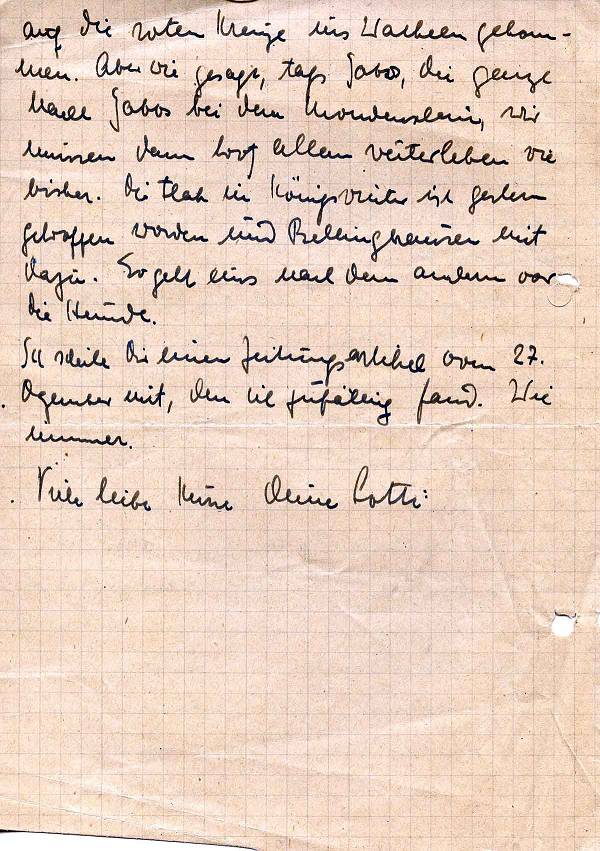 auf die roten Kreuze ins Wackeln gekom-
men. Aber wie gesagt, tags Jabos, die ganze
Nacht Jabos bei dem Mondenschein, wir
müssen dann trotz allem weiterleben wie
bisher. Die in Königswinter ist gestern
getroffen worden und Bellinghausen mit
dazu. So geht eins nach dem andern vor
die Hunde.
Ich schicke Dir einen Zeitungsartikel vom 27.
Dezember mit, den ich zufällig fand. Wie
immer.
Viele liebe Deine Lotti